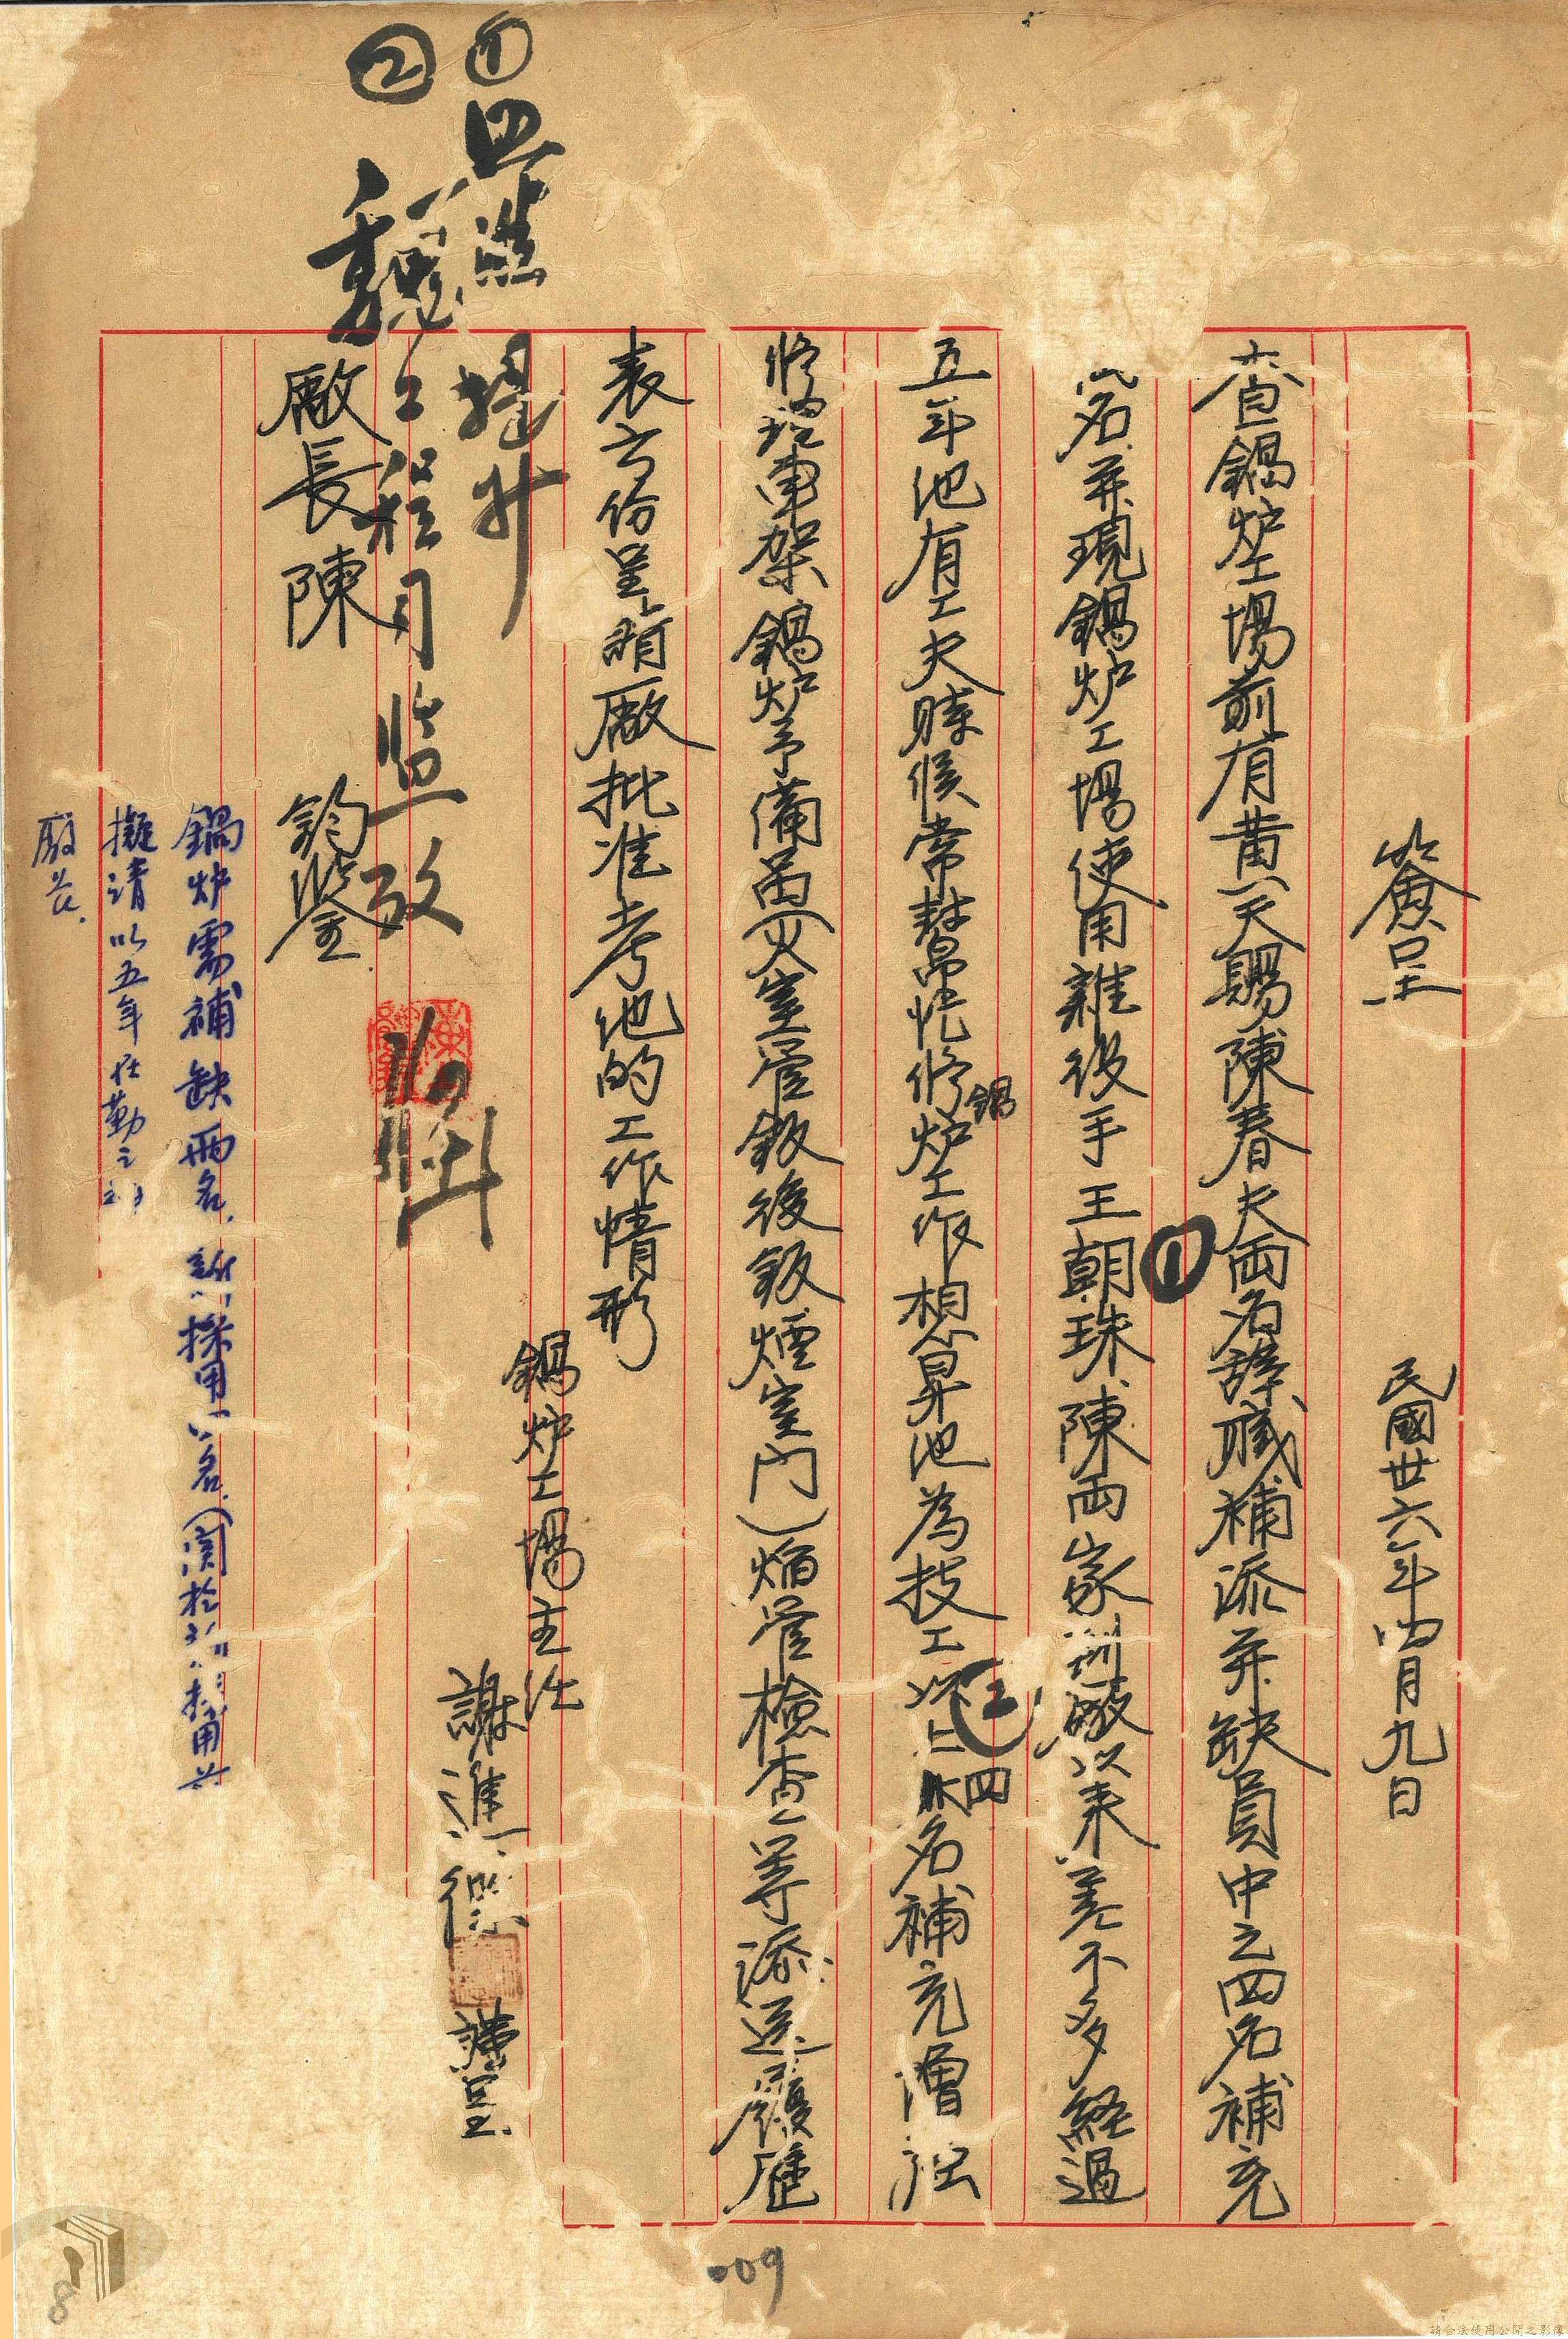 簽呈 民國廿六年四月九日
查鍋炉工場前有黃天賜陳春夫両名辞職補添并缺員中之四名補充
名并現鍋炉工場使用雜役手王朝珠陳両家到廠以来差不多経過
五年他有工夫時候常帮忙修鍋炉工作相算他為技工以上四名補充增強
修理車架鍋炉予備品(火室管鈑後鈑煙室門)焔管檢查等添送履歴
表六份呈請廠批准考他的工作情形
鍋炉工場主任
謝進德 謹呈
廠長陳 鈞鑒
① 照准
② 魏工程司監放
鍋炉需補缺両名採用一名(関於
擬請以五年在勤之
廠長.
①
②
009
8
請合法使用公開之影像